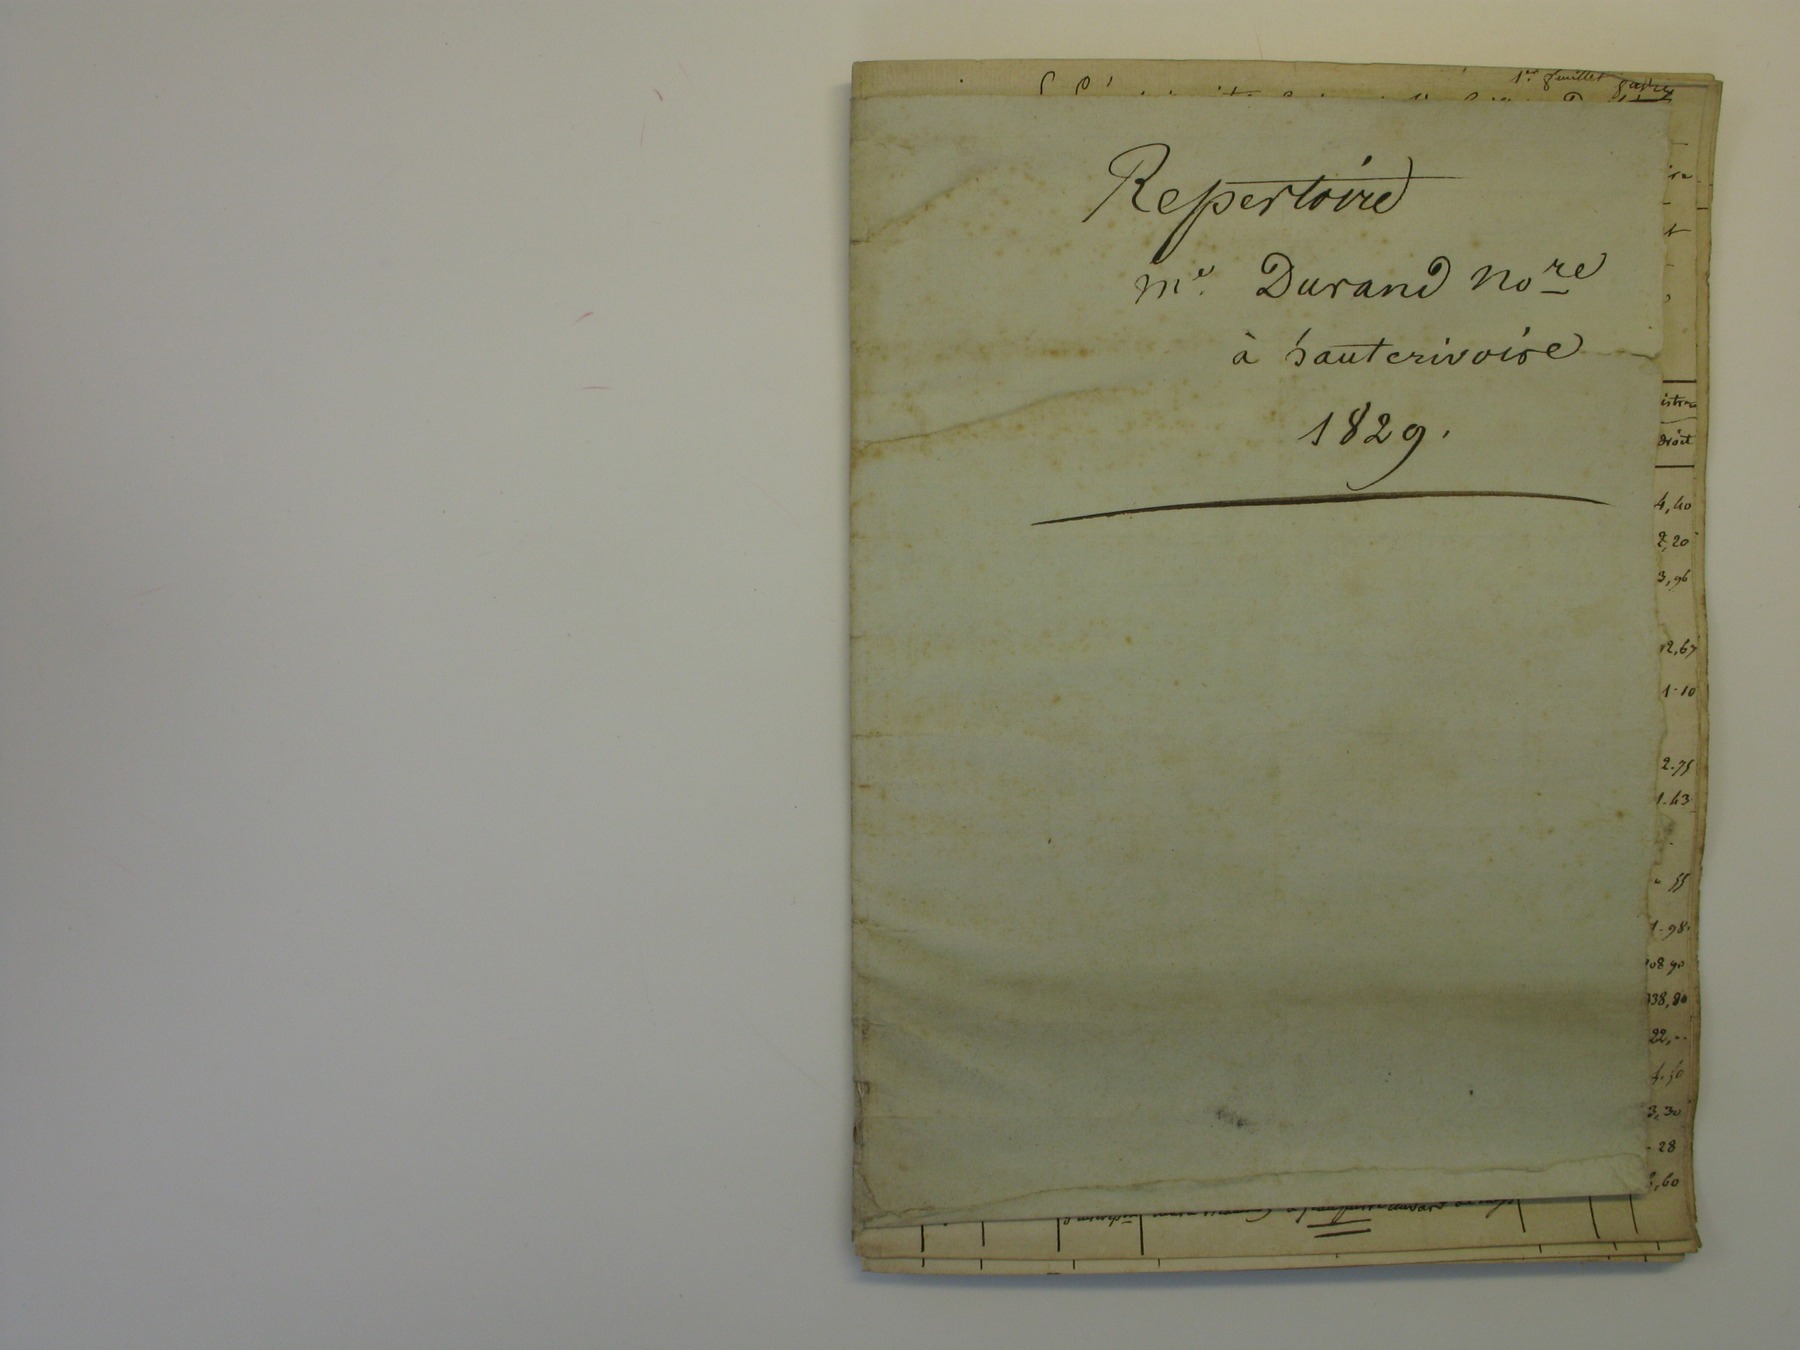 1er feuillet
Repertoire
me. Durand Nore
à hauterivoire
1829.
istre
droit
4,40
2,20
3,96
2,67
1.10
2.75
1.43
55
1.98
08 90
338,80
22,--
3,30
28
,60